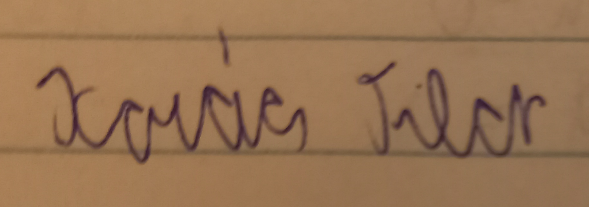 Kovács Tibor